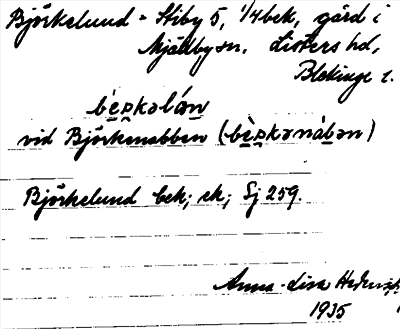 Björkelund = Stiby 5, 1/4 bek, gård i
Mjällby sn. Listers hd,
Blekinge l.
bè̠ꞅkəlán̠
vid Björkenabben (bè̠ꞅkənáb̠ən)
Björkelund bek; ek; Sj 259.
Anna-Lisa
1935